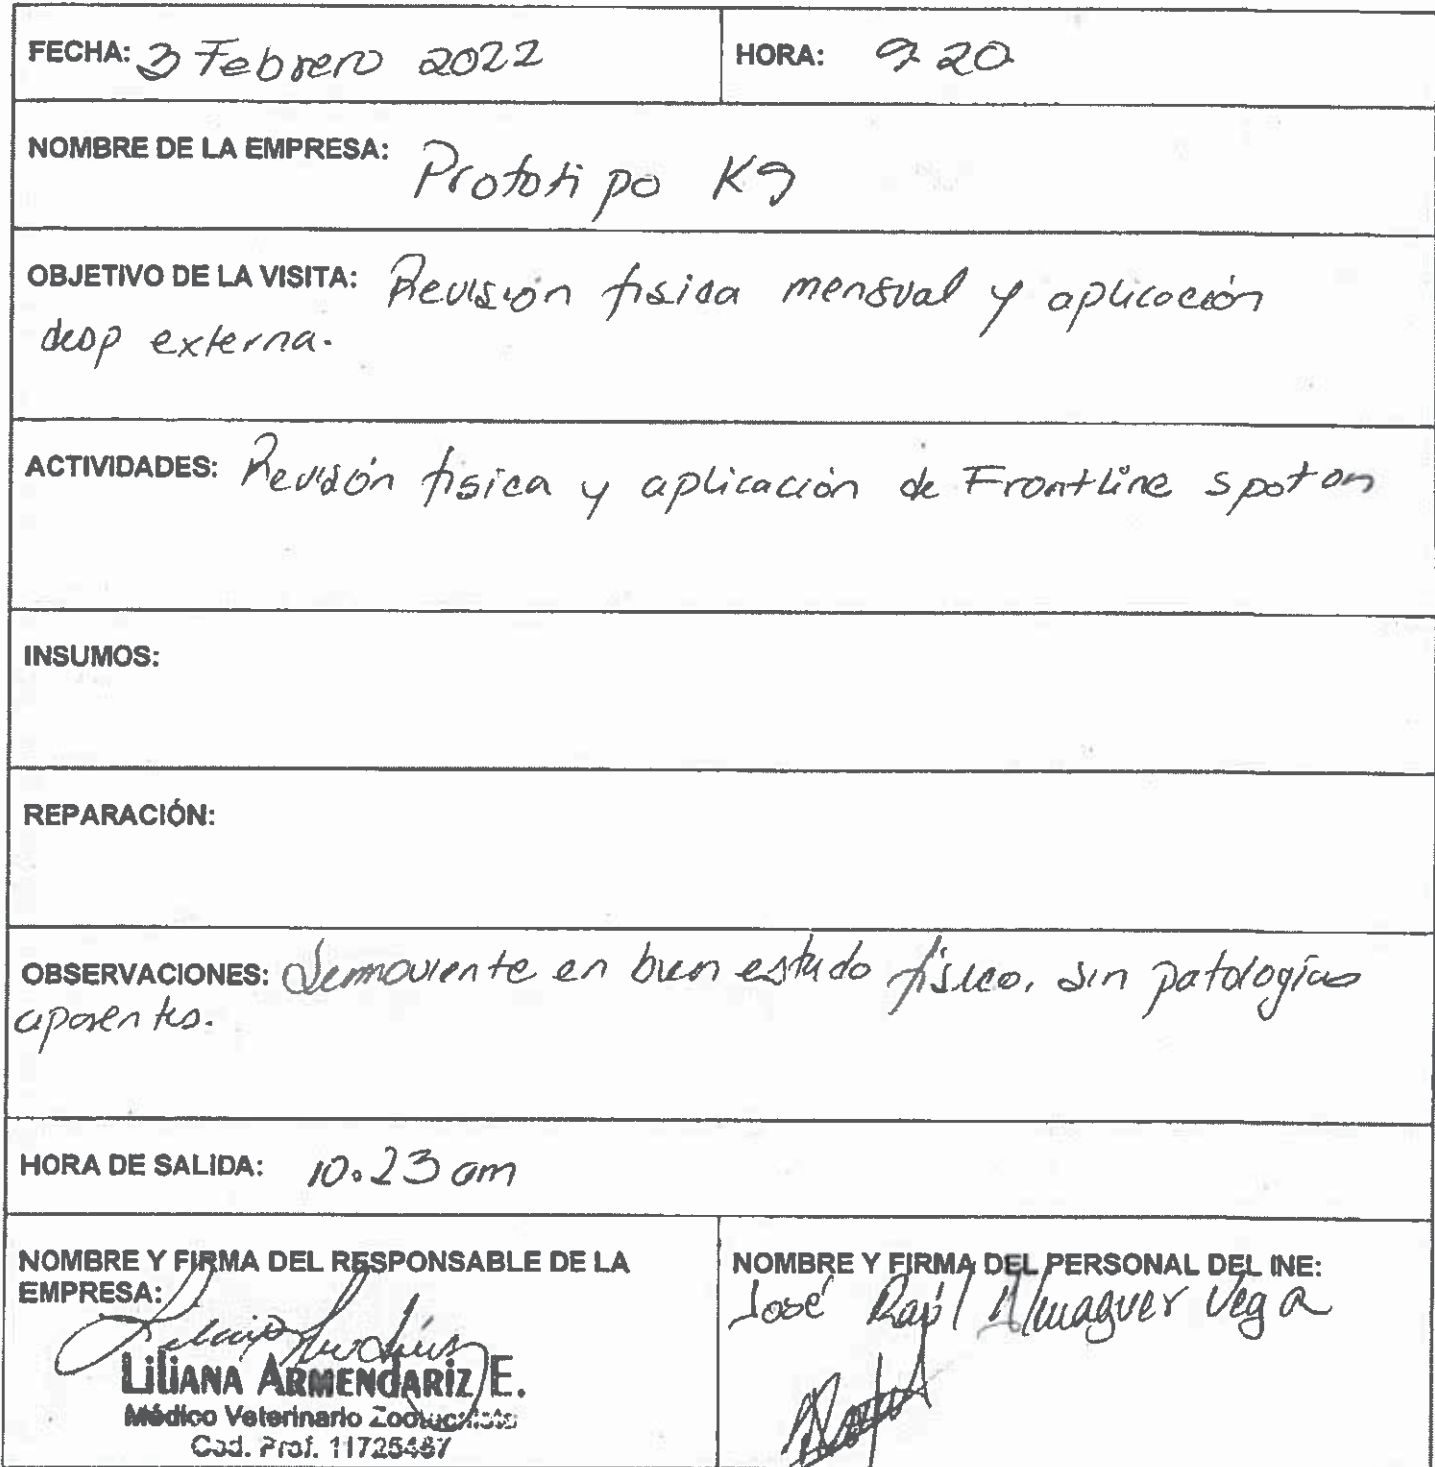 FECHA: 3 Febrero 2022 HORA: 9 20
NOMBRE DE LA EMPRESA: Prototipo K9
OBJETIVO DE LA VISITA: Revisión física mensual y aplicación
desp externa.
ACTIVIDADES: Revisión física y aplicación de Frontline spot on
INSUMOS:
REPARACIÓN:
OBSERVACIONES: Semoviente en buen estado físico, sin patologías
aparentes.
HORA DE SALIDA: 10.23 am
NOMBRE Y FIRMA DEL RESPONSABLE DE LA
EMPRESA:
LILIANA ARMENDARIZ E.
Médico Veterinario Zootecnista
Ced. Prof. 11725467
NOMBRE Y FIRMA DEL PERSONAL DEL INE:
José Raúl Almaguer Vega